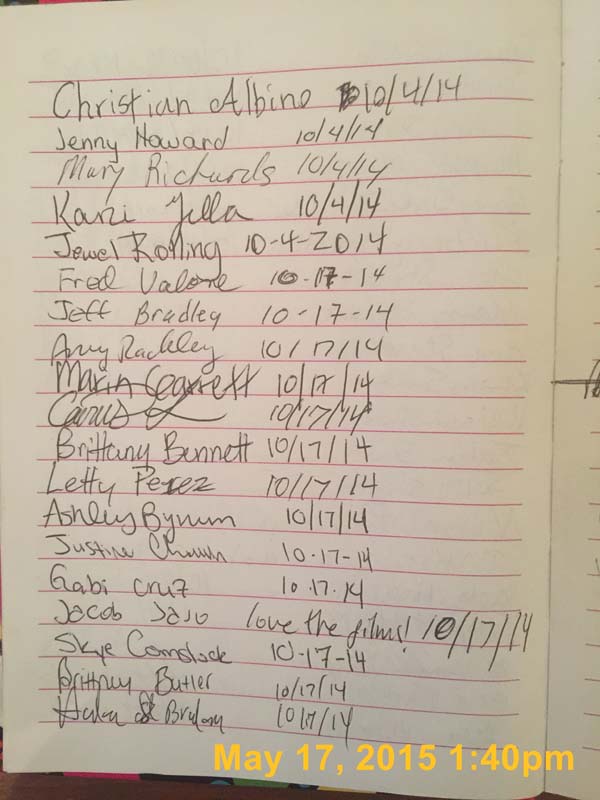 Christian Albino 10/4/14
Jenny Howard 10/4/14
Mary Richards 10/4/14
10/4/14
Jewel Rolling 10-4-2014
Fred Valone 10-17-14
Jeff Bradley 10-17-14
Amy Rackley 10/17/14
Maria Garrett 10/17/14
10/17/14
Brittany Bennett 10/17/14
Letty Perez 10/17/14
Ashley Bynum 10/17/14
Justine 10-17-14
Gabi Cruz 10.17.14
Jacob love the films! 10/17/14
Skye Comstock 10-17-14
Brittney Butler 10/17/14
10/17/14
May 17, 2015 1:40pm